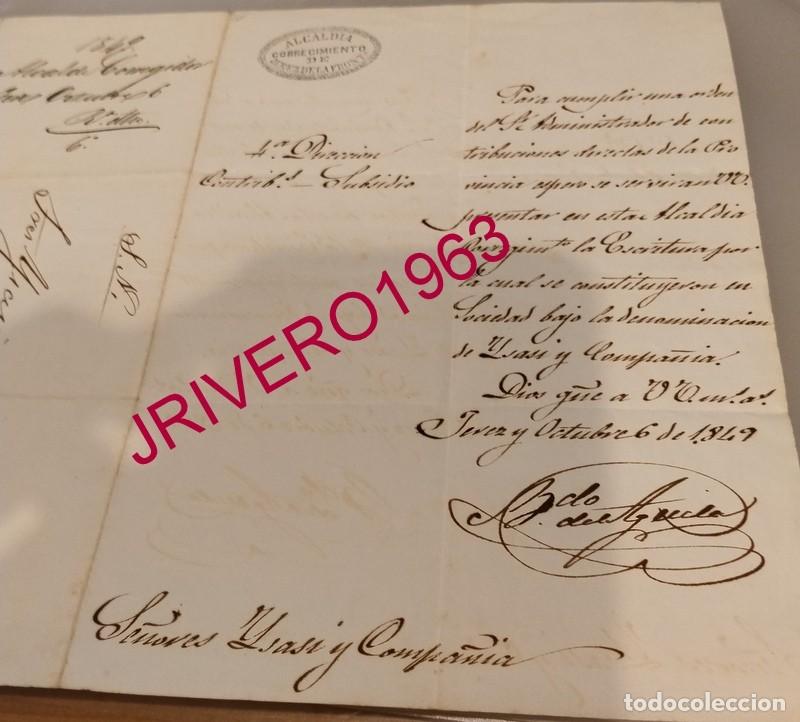 1849
Alcalde Corregidor
Octubre 6
6.
S. N.
ALCALDIA
CORREGIMIENTO
DE
JEREZ DE LA FRONT.
4.ª Direccion
Contrib.s - Subsidio
Para cumplir una orden
del Sr. Administrador de con
tribuciones directas de la Pro
vincia espero se serviran VV.
presentar en esta Alcaldia
Corregim.to la Escritura por
la cual se constituyeron en
Sociedad bajo la denominacion
de Ysasi y Compañia.
Dios gũe a VV. m.s a.s
Jerez y Octubre 6 de 1849
B.do
del Aguila
Señores Ysasi y Compañia
JRIVERO1963
todocoleccion